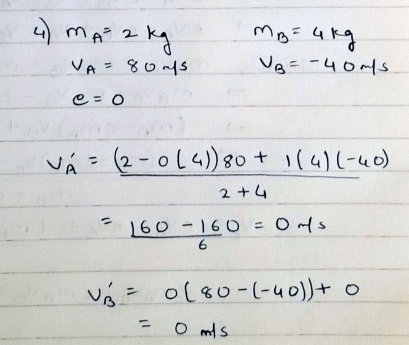 4) mA = 2 kg mB = 4 kg
vA = 80 m/s vB = -40 m/s
e = 0
vA' = (2 - 0(4))80 + 1(4)(-40)
2+4
= 160 - 160 = 0 m/s
6
vB' = 0(80-(-40)) + 0
= 0 m/s